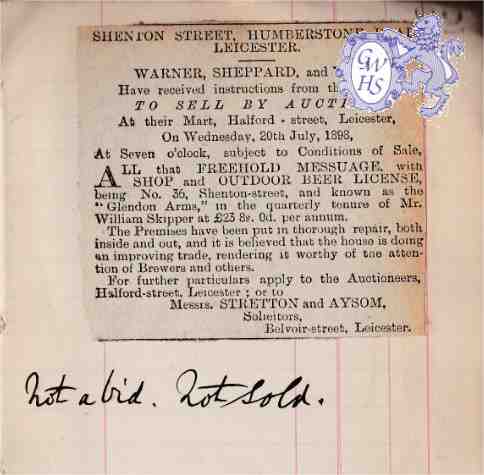 SHENTON STREET, HUMBERSTONE
LEICESTER.
WARNER, SHEPPARD, and
Have received instructions from
TO SELL BY
At their Mart, Halford-street, Leicester,
On Wednesday, 20th July, 1898,
At Seven o'clock, subject to Conditions of Sale,
ALL that FREEHOLD MESSUAGE, with
SHOP and OUTDOOR BEER LICENSE,
being No. 36, Shenton-street, and known as the
"Glendon Arms," in the quarterly tenure of Mr.
William Skipper at £23 8s. 0d. per annum.
The Premises have been put in thorough repair, both
inside and out, and it is believed that the house is doing
an improving trade, rendering it worthy of the atten-
tion of Brewers and others.
For further particulars apply to the Auctioneers,
Halford-street, Leicester; or to
Messrs. STRETTON and AYSOM,
Solicitors,
Belvoir-street, Leicester.
GWHS
Not a bid. Not sold.